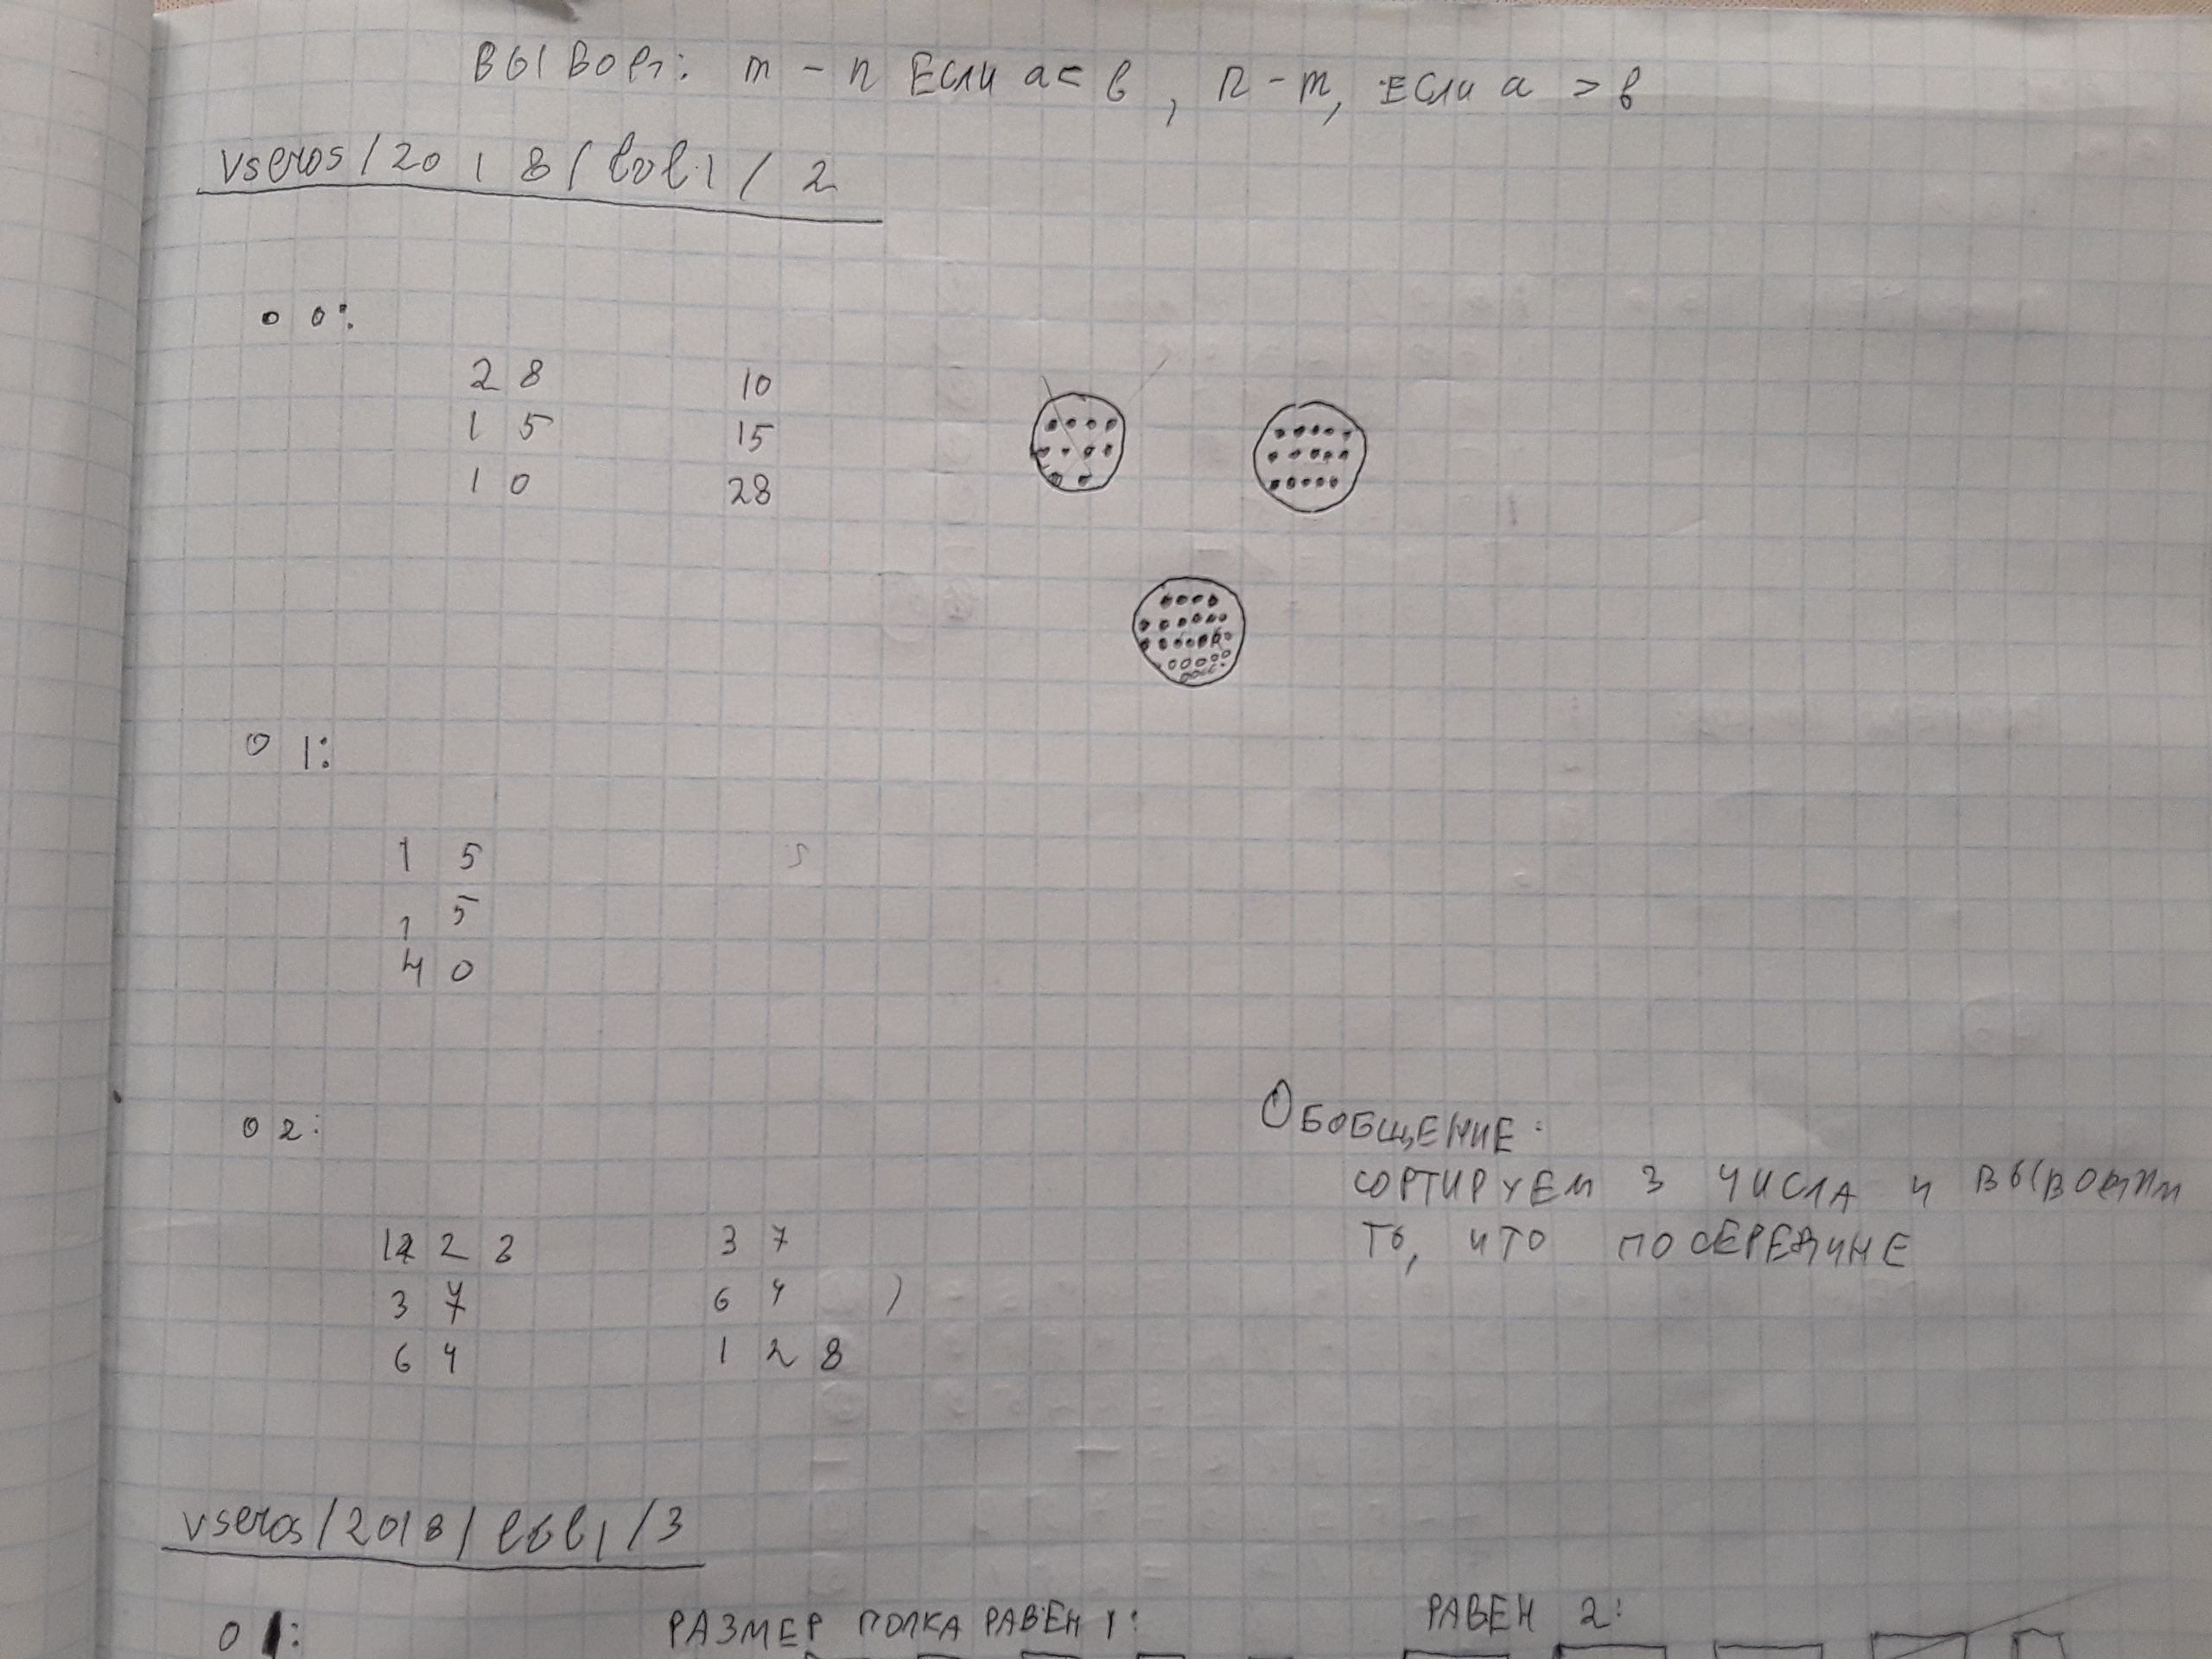 ВЫВОД: m - n ЕСЛИ a < b, n - m, ЕСЛИ a > b
vseros/2018/lvl1/2
00:
28 10
15 15
10 28
01:
15 5
15
40
02:
128 37
37 64
64 128
ОБОБЩЕНИЕ:
СОРТИРУЕМ 3 ЧИСЛА И ВЫВОДИМ
ТО, ЧТО ПОСЕРЕДИНЕ
vseros/2018/lvl1/3
01: РАЗМЕР ПОЛКА РАВЕН 1: РАВЕН 2: